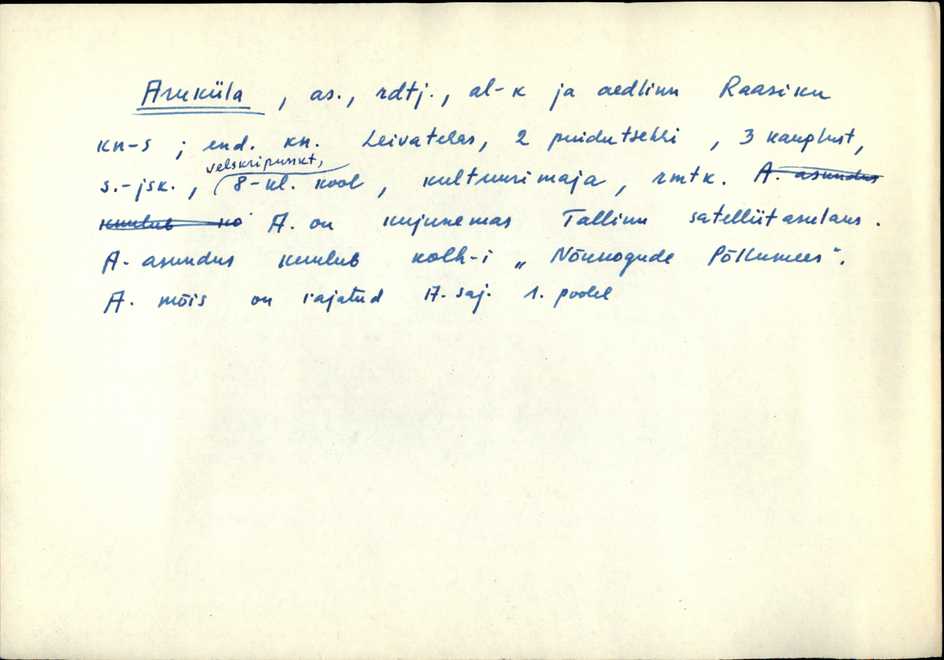 Aruküla, as., rdtj., al-k ja aedlinn Raasiku
kn-s; end. kn. Leivatehas, 2 puidutsehhi, 3 kauplust,
velskripunkt,
s.-jsk., 8-kl. kool, kultuurimaja, rmtk. A. asundus
kuulub ko A. on kujunemas Tallinn satelliitasulaks.
A. asundus kuulub kolh-i „Nõukogude Põllumees".
A. mõis on rajatud 17. saj. 1. poolel